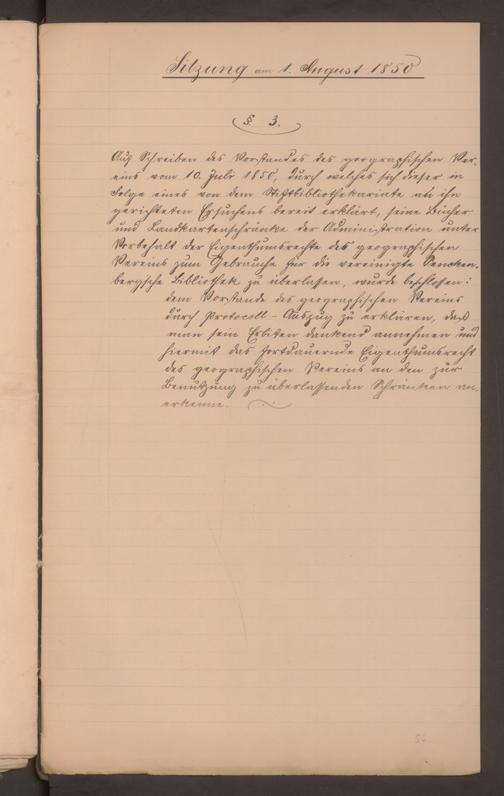 Sitzung am 1. August 1850
§. 3.
Auf Schreiben des Vorstandes des geographischen Ver-
eins vom 10. Juli 1850, durch welches sich dieser in
Folge eines von dem Stiftbibliothekariate an ihn
gerichteten Ersuchens bereit erklärt, seine Bücher
und Landkartenschränke der Administration unter
Vorbehalt der Eigenthumsrechte des geographischen
Vereins zum Gebrauche für die vereinigte Sencken-
bergische Bibliothek zu überlassen, wurde beschlossen:
dem Vorstande des geographischen Vereins
durch Protocoll-Auszug zu erklären, daß
man sein Erbieten dankend annehmen und
hiermit das fortdauernde Eigenthumsrecht
des geographischen Vereins an den zur
Benutzung zu überlassenden Schränken an-
erkenne.